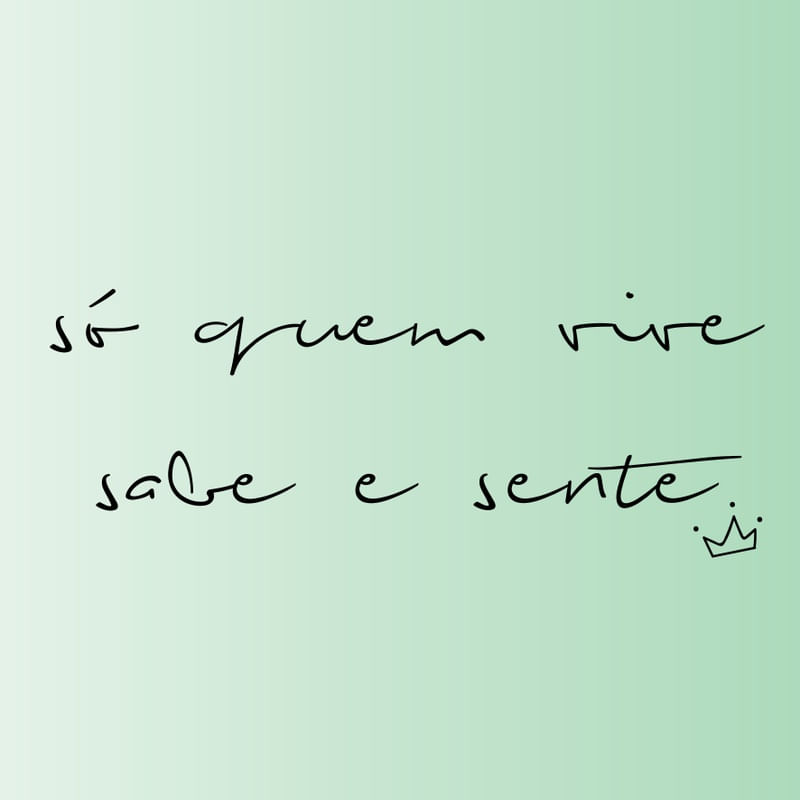 só quem vive
sabe e sente